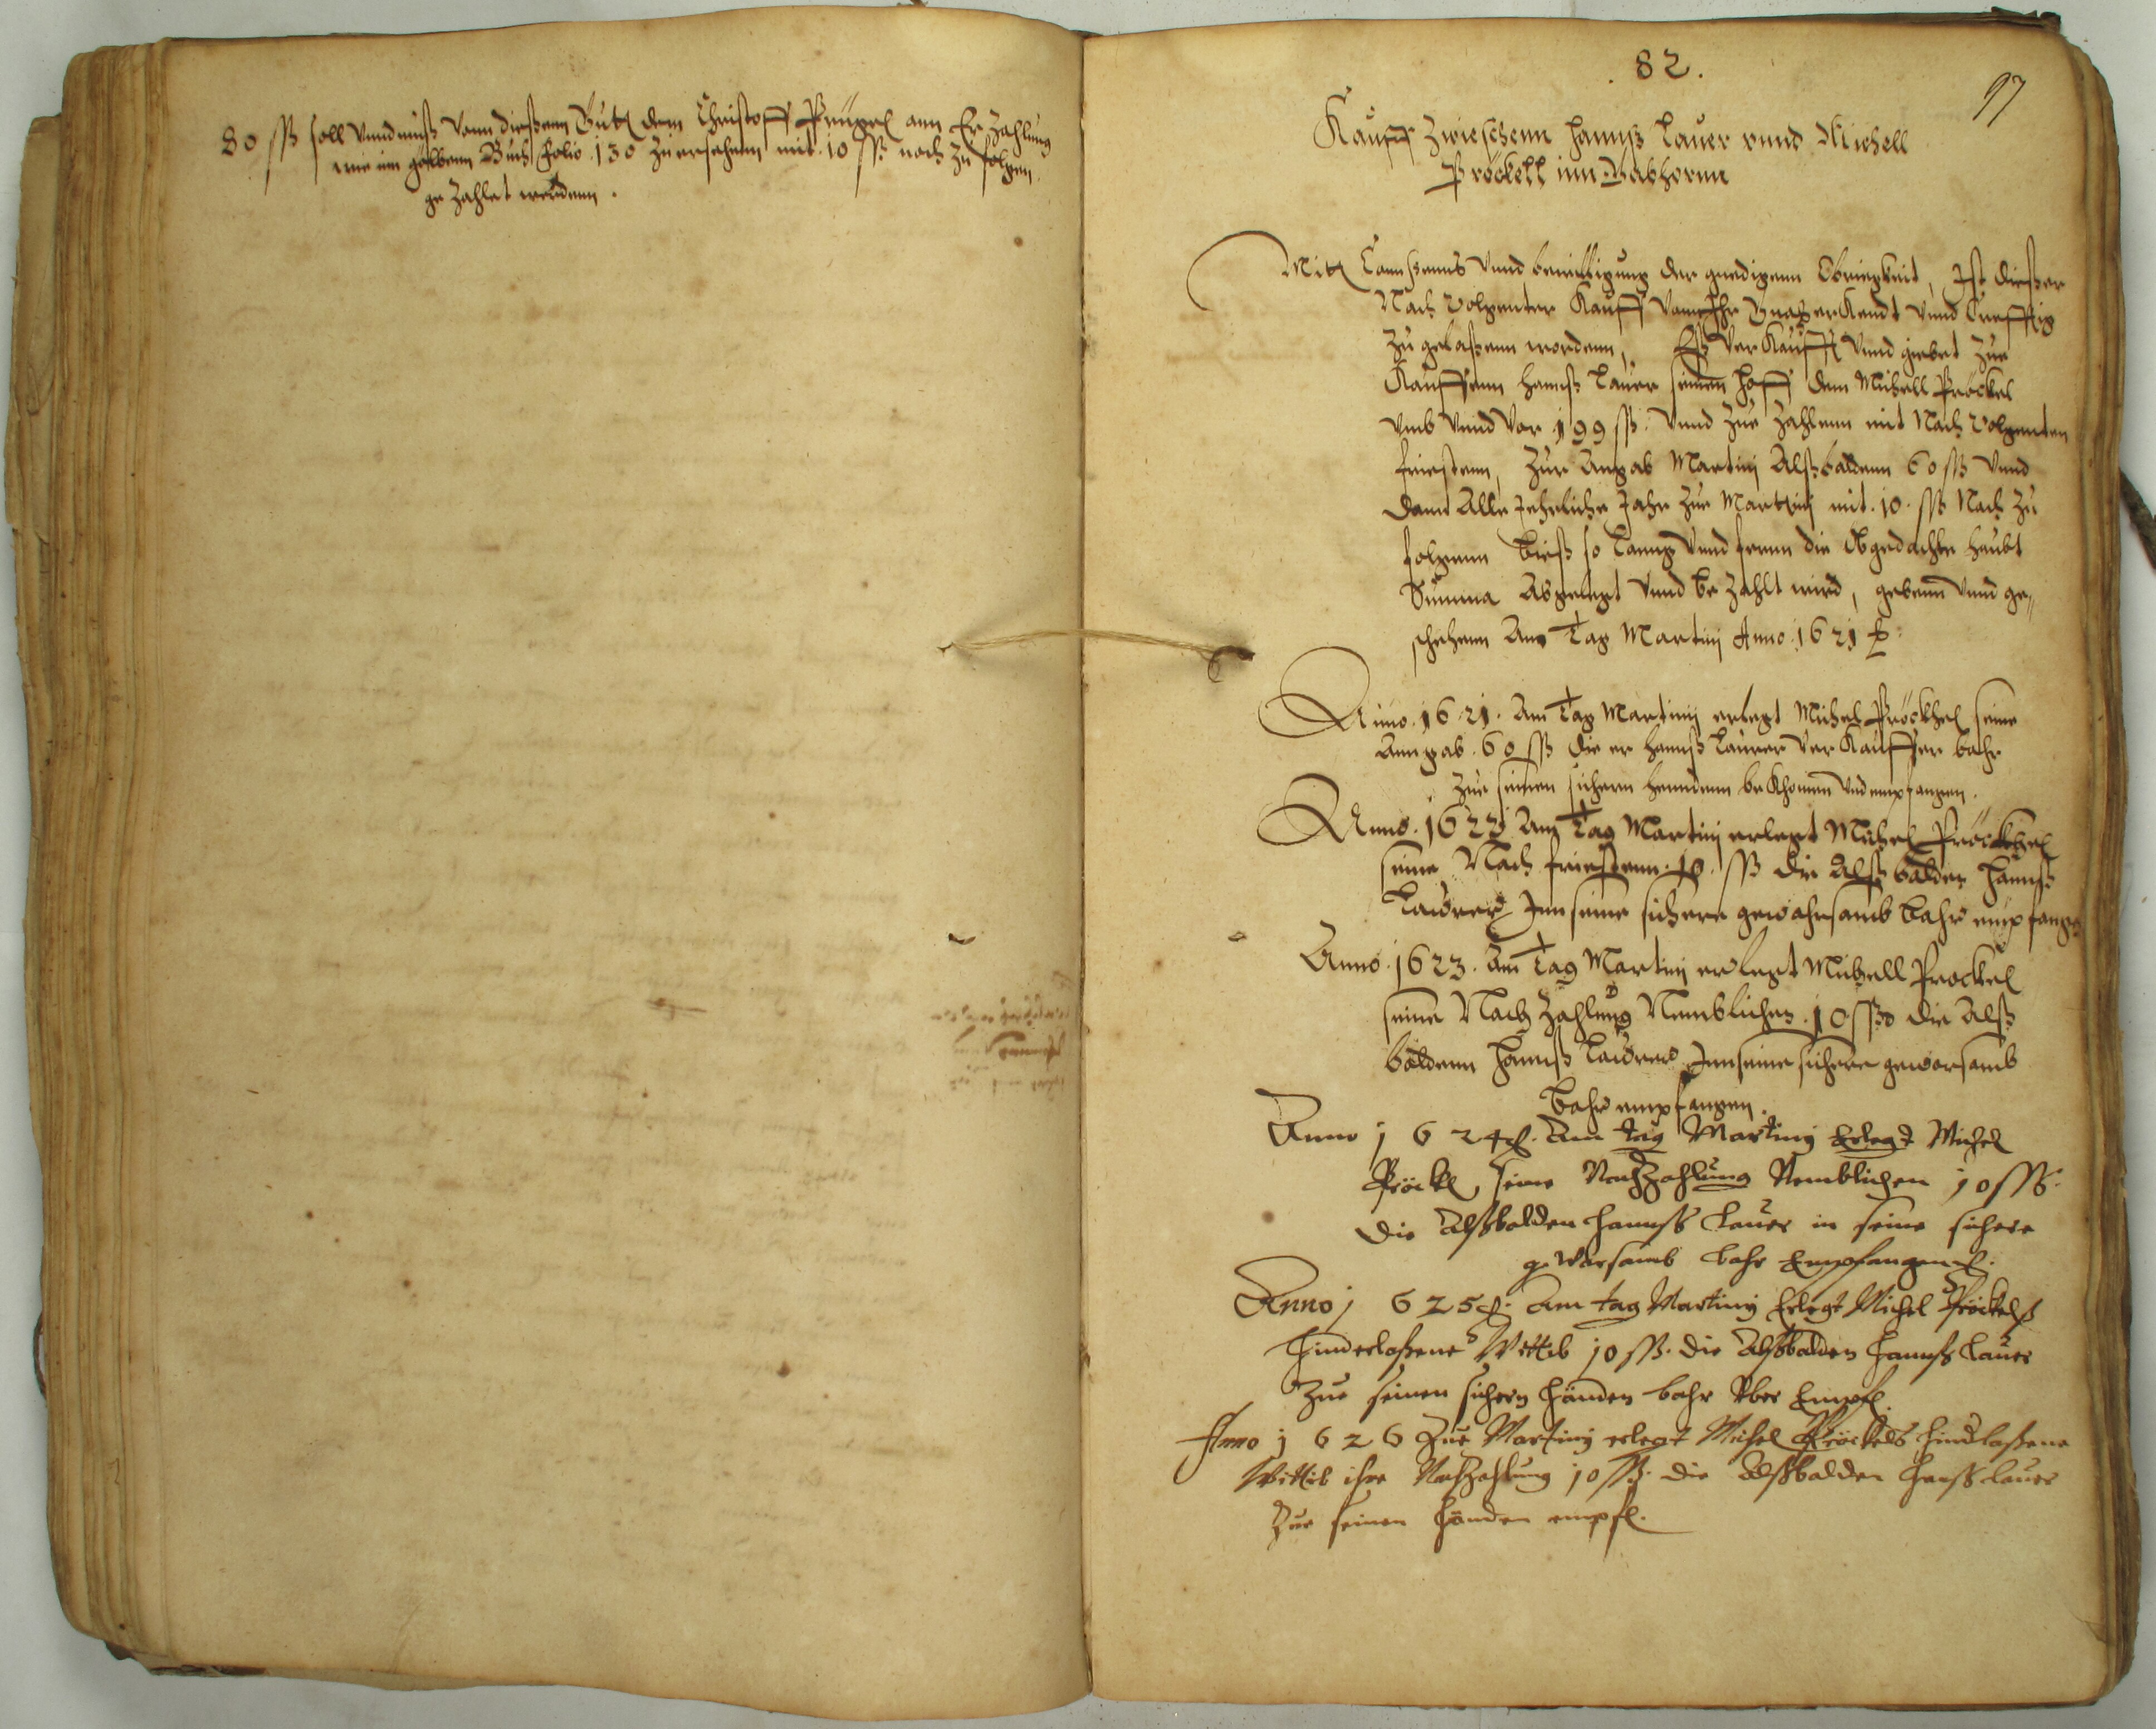 80 ßß soll vnnd muß vonn dießenn Gutt dem Christoff Prügel ann Erzahlung
wie im gelbenn Buch Folio 130 zuersehenn mit 10 ßß nach zu folgen
gezahlet werdenn.
.82.
97
Kauff Zwieschenn Hannß Laurer vnnd Michell
Pröckell inn
Mitt Connsenns vnnd bewilligung der gnedigenn Obriegkeit, Ist dießer
Nach Volgenter Kauff vonn Ihr Gnaden erKendt vnnd Crefftig
Zu gelaßenn wordenn, Eß VerKaufft vnnd giebet Zue
Kauffenn Hannß Laurer seinen Hoff dem Michell Pröckel
vmb vnnd vor 199 ßß. vnnd Zue Zahlenn mit Nach Volgenten
friestenn, Zur Angab Martinj Alßbaldenn 60 ßß vnnd
dann Alle Jehrliche Jahr Zue Martinj mit 10. ßß Nach Zu
folgenn bieß so lanng vnnd fernn die Obgedachte Haubt
Summa Abgelegt vnnd beZahlt wird, gebenn vnnd ge„
schehenn Am Tag Martinj Anno 1621
Anno 1621. Am Tag Martinj erlegt Michel Pröckhel seine
Anngab 60 ßß die er Hannß Laurer VerKauffer bahr
Zue seinen sichern Henndenn bekhomen vnd empfangen.
Anno. 1622 Am Tag Martinj erlegt Michel Pröckhel
seine Nach friestenn. 10. ßß die Alß balden Hannß
Laurer Inn seine sichere gewahrsamb bahr empfangen
Anno. 1623. Am Tag Martinj erlegt Michell Prockel
seine Nach Zahlung Nemblichen. 10 ßß die Alß
baldenn Hannß Laurer Inn seine sichere gewarsamb
bahr empfangen.
Anno 1624. Am tag Martinj Erlegt Michel
Pröckl seine Nachzahlung Nemblichen 10 ßß.
die Alßbalden Hannß Laurer in seine sichere
gewarsamb bahr Empfangen.
Anno 1625. Am tag Martinj Erlegt Michel Pröckelß
Hinderlaßene Wittib 10 ßß. die Alßbalden Hannß Laurer
Zue seinen sichern Händen bahr Empf.
Anno 1626 Zue Martinj erlegt Michel Pröckels Hindlaßene
Wittib ihre Nachzahlung 10 ßß. die Alßbalden Hanß Laurer
Zue seinen Händen empf.